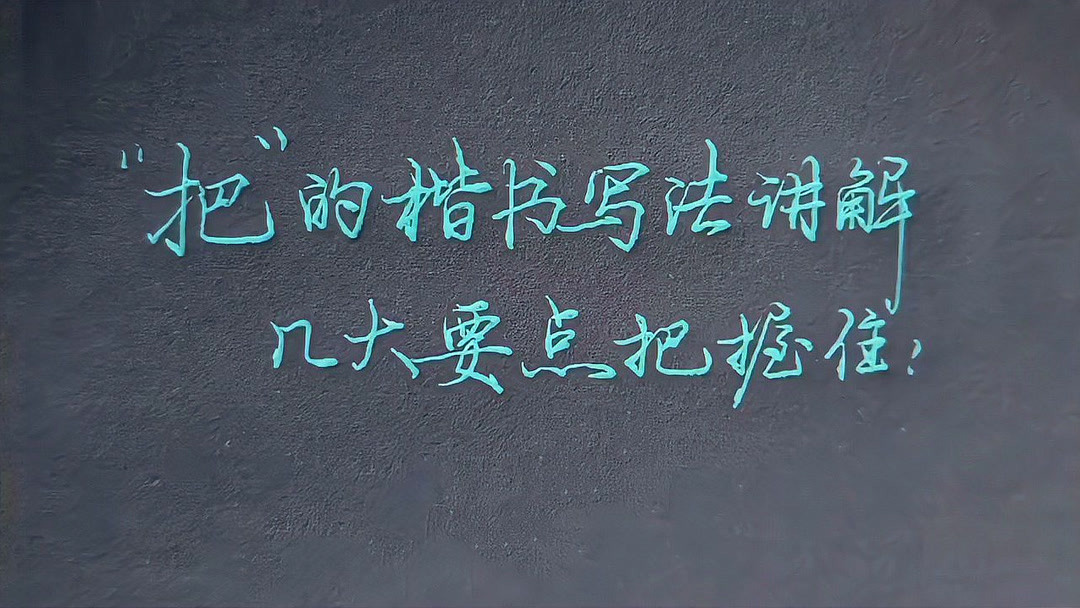 “把”的楷书写法讲解
几大要点把握住: